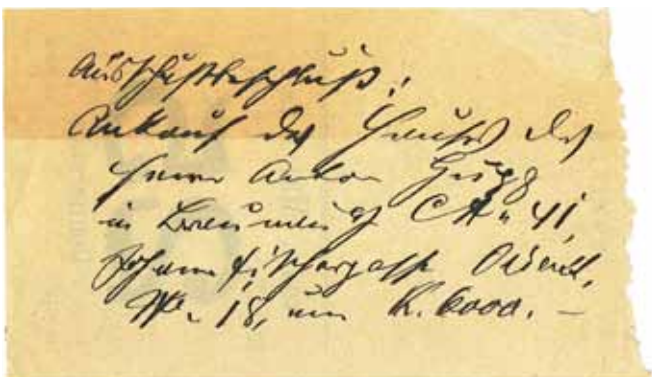 Ausschußbeschluß:
Ankauf des Hauses des
Herrn Anton Gugg
in Braunau CN. 41,
Johann Fischergasse
Nr. 18, um K. 6000. —